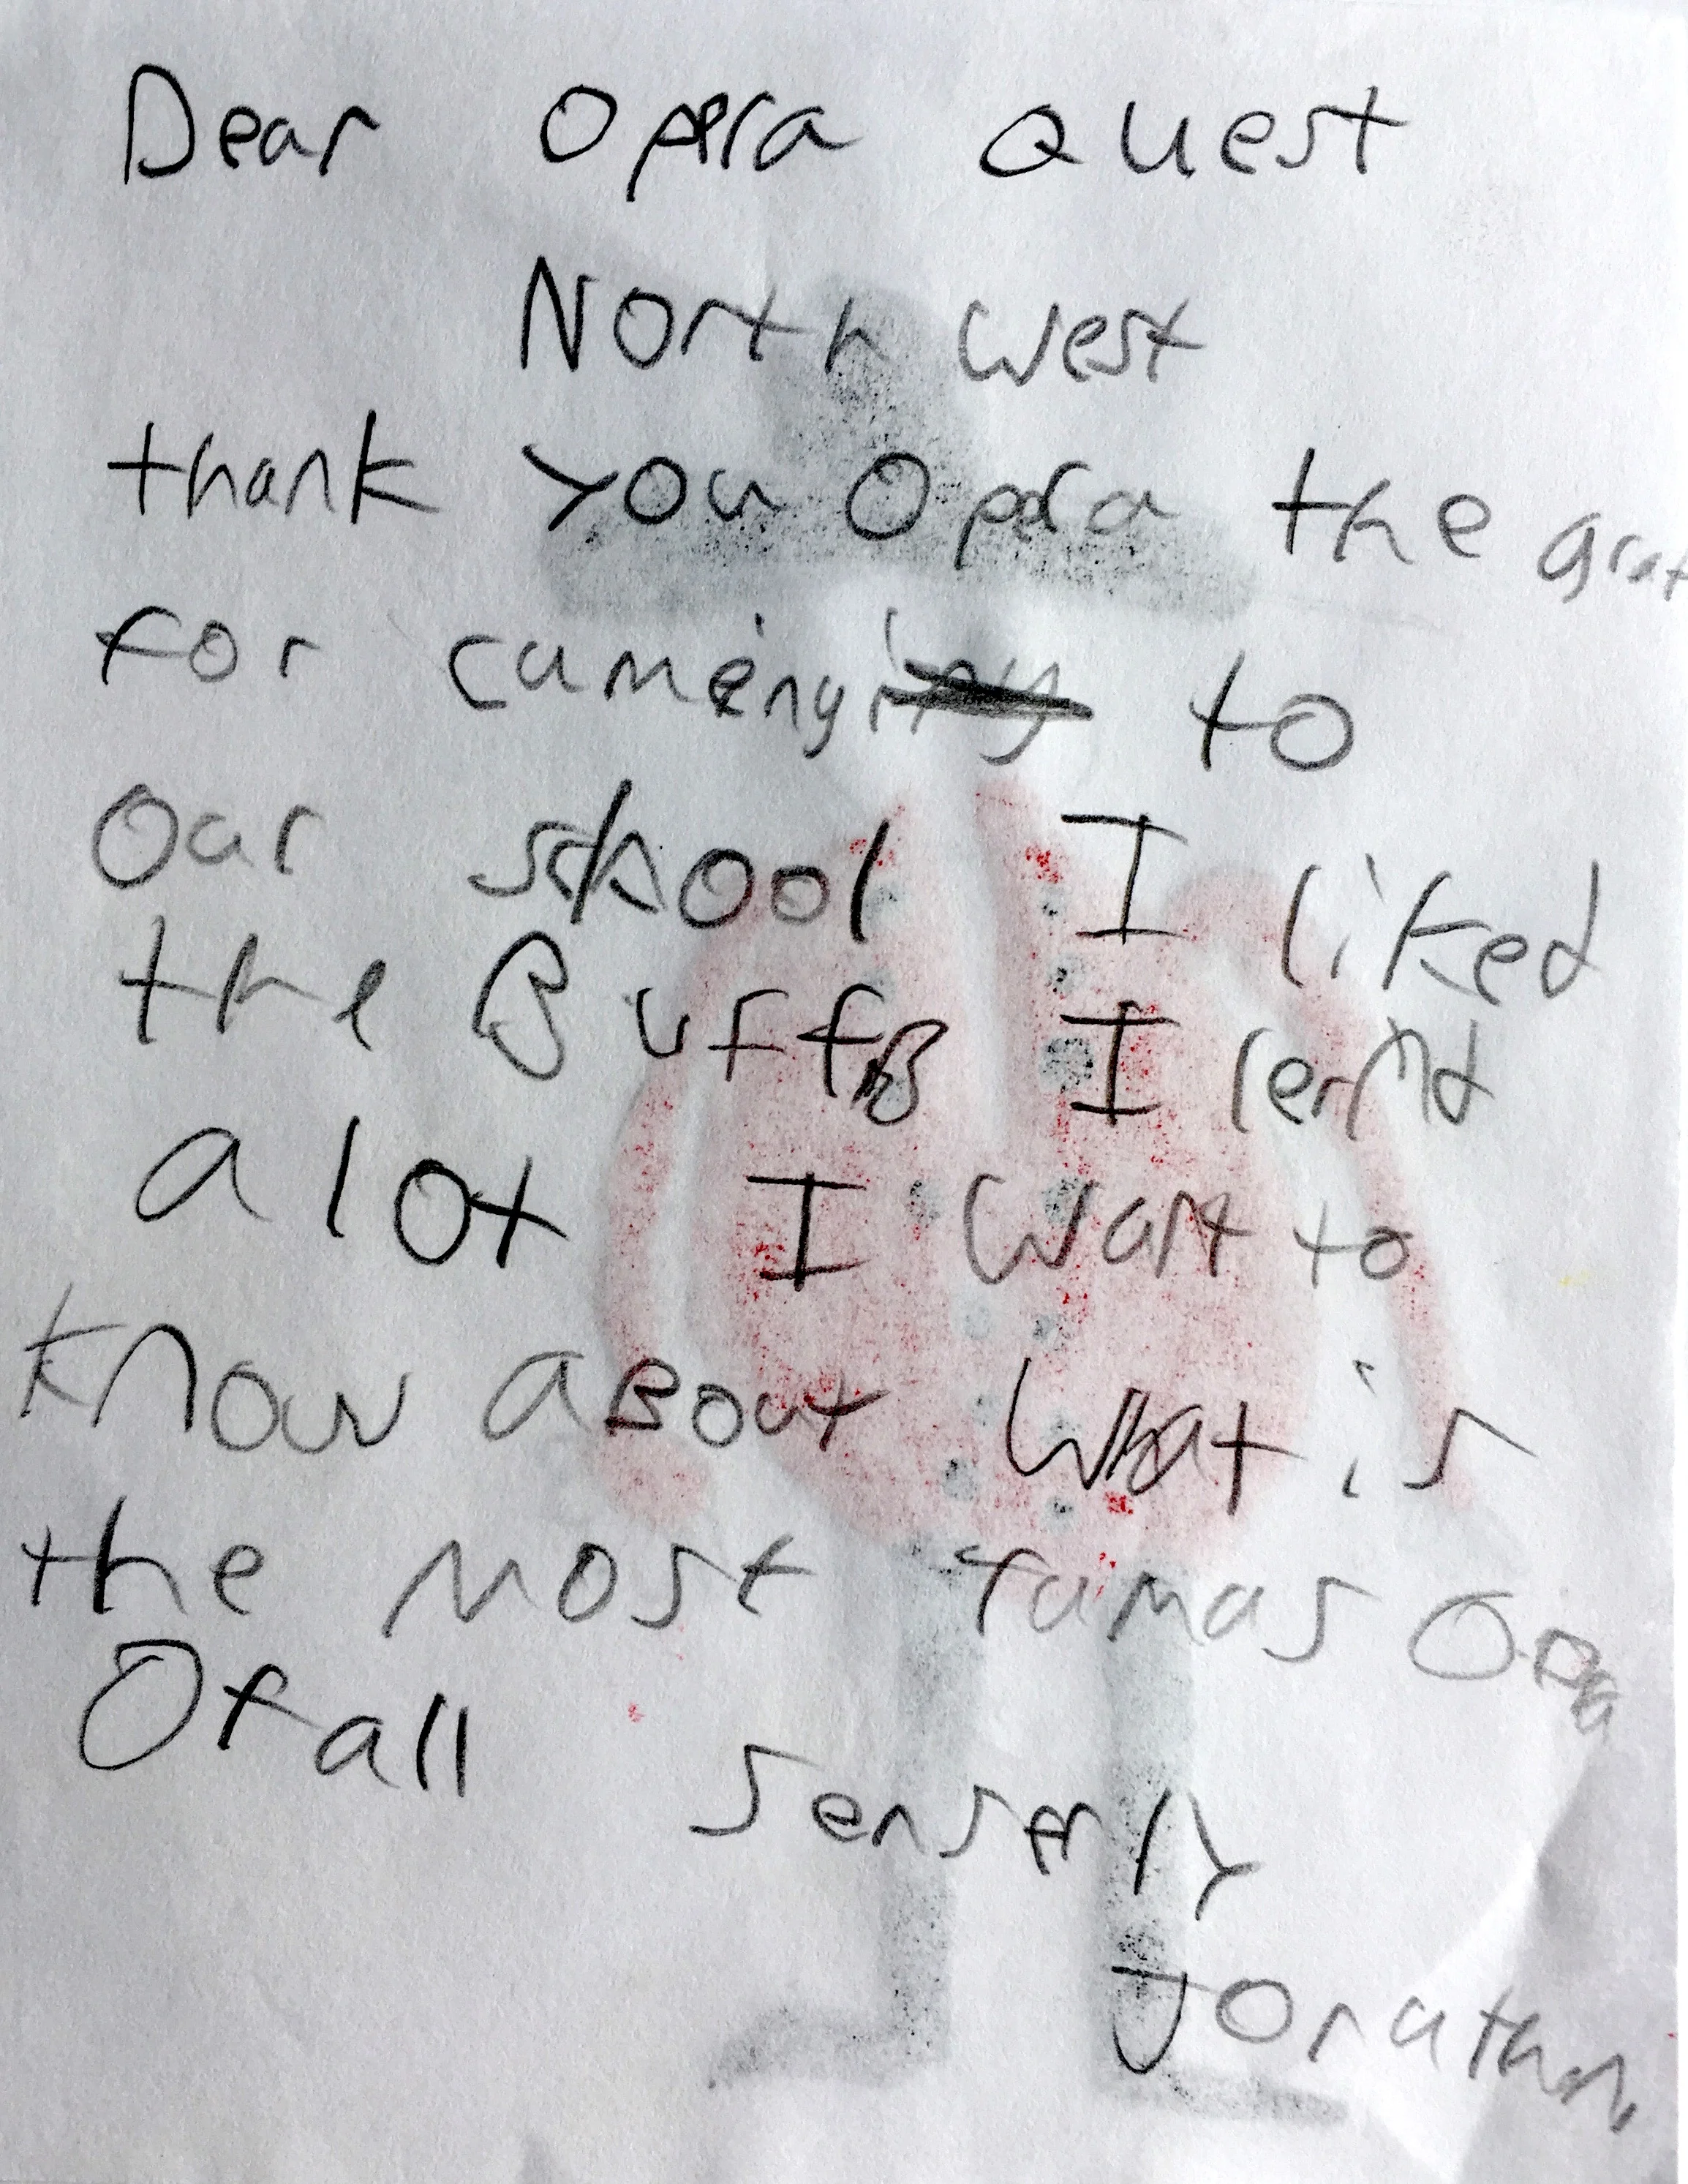 Dear Opera Quest
North West
thank you Opera the grat
for cumeing to
Our school I liked
the Buffo I lernd
a lot I want to
know aBout What is
the most famas Opra
Of all
senserly
Jonathan